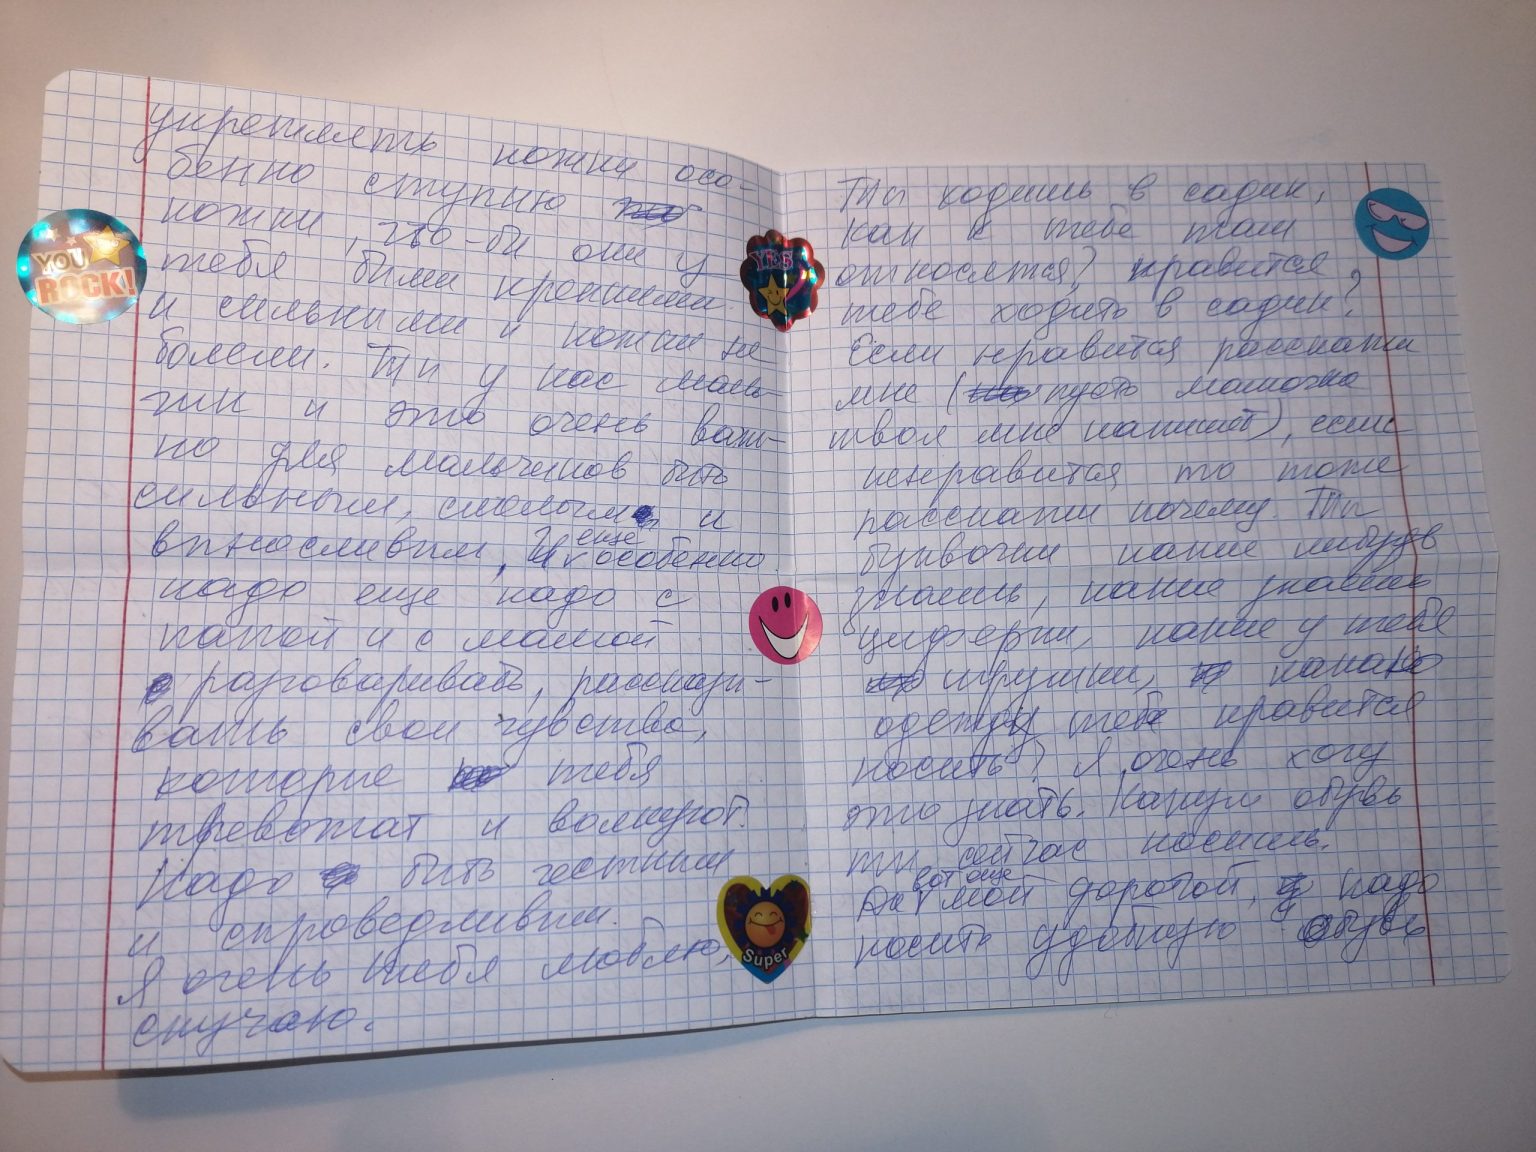 укреплять ножки осо-
бенно ступню
ножки, что-бы они у
тебя были крепкими
и сильными и ножки не
болели. Ты у нас маль-
чик и это очень важ-
но для мальчиков быть
сильным, смелым и
выносливым, И еще особенно
надо еще надо с
папой и с мамой
разговаривать, рассказы-
вать свои чувства,
которые тебя
тревожат и волнуют.
Надо быть честным
и справедливым.
Я очень тебя люблю,
скучаю.
Ты ходишь в садик,
как к тебе там
относятся? нравится
тебе ходить в садик?
Если нравится расскажи
мне (пусть мамочка
твоя мне напишет), если
ненравится то тоже
расскажи почему. Ты
буквочки какие нибудь
знаешь, какие знаешь
циферки, какие у тебя
игрушки, какую
одежду тебе нравится
носить? Я очень хочу
это знать. Какую обувь
ты сейчас носишь.
Да вот еще мой дорогой, надо
носить удобную обувь
YOU
ROCK!
YES
Super